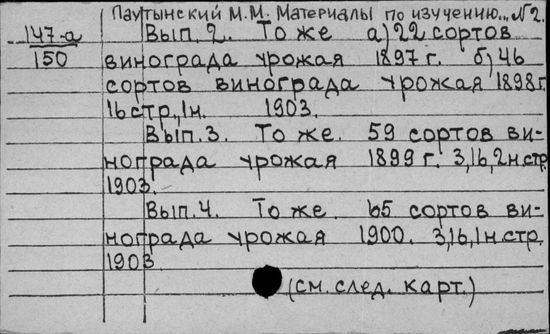 Паутынский М.М. Материалы по изучению... №2.
147-а
150
Вып. 2. То же а) 22 сортов
винограда урожая 1897 г. б) 46
сортов винограда урожая 1898 г.
16 стр., 1 н. 1903.
Вып. 3. То же. 59 сортов ви-
нограда урожая 1899 г. 3, 16, 2 н стр.
1903.
Вып. 4. То же. 65 сортов ви-
нограда урожая 1900. 3, 16, 1 н стр.
1903
(см. след. карт.)